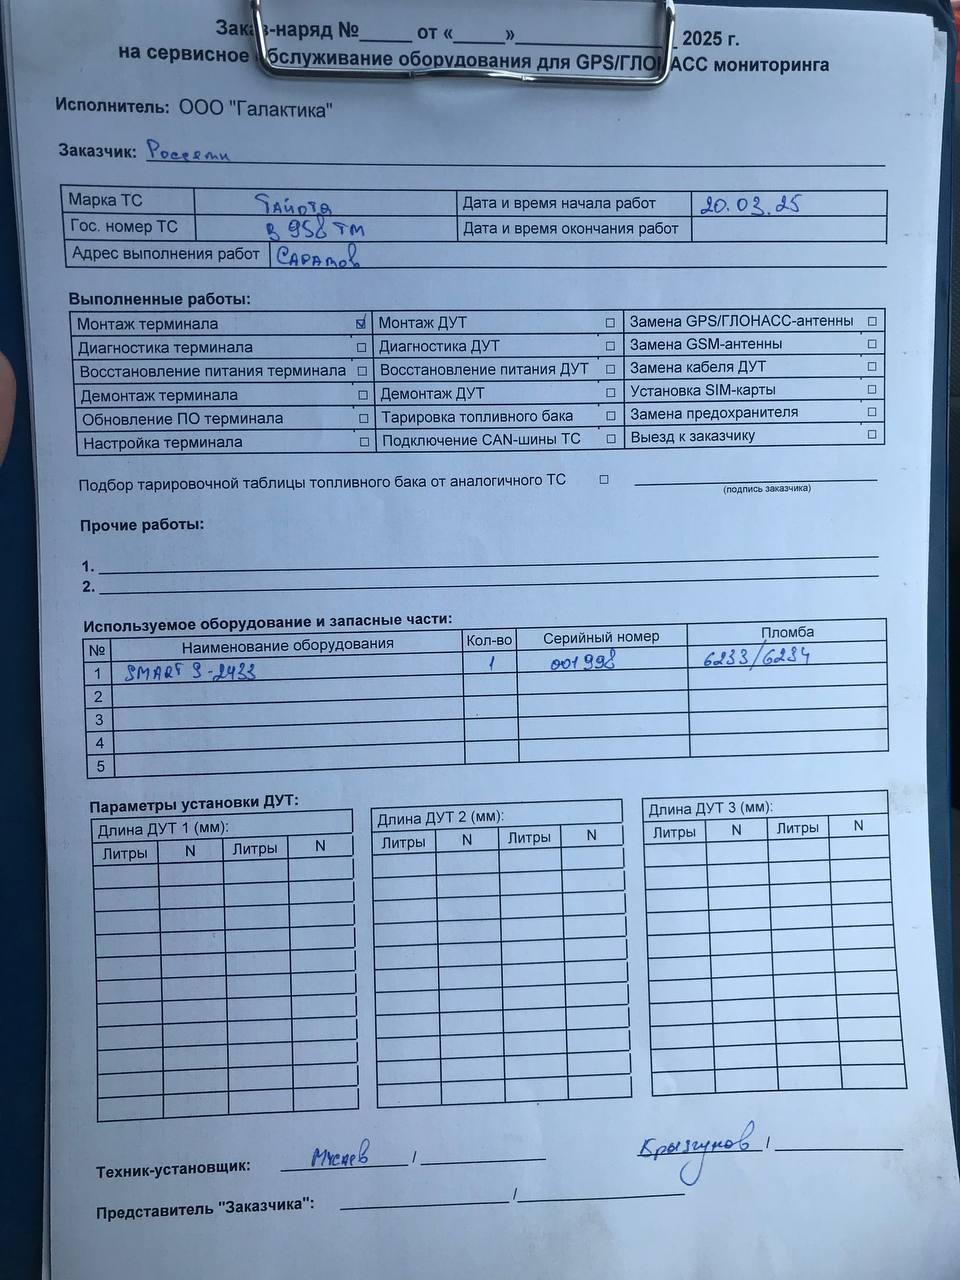 Заказ-наряд №_____ от «_____»_______________ 2025 г.
на сервисное обслуживание оборудования для GPS/ГЛОНАСС мониторинга
Исполнитель: ООО "Галактика"
Заказчик: Россети
Марка ТС Тайота Дата и время начала работ 20.03.25
Гос. номер ТС В 958 ТМ Дата и время окончания работ
Адрес выполнения работ Саратов
Выполненные работы:
Монтаж терминала ☑ Монтаж ДУТ ☐ Замена GPS/ГЛОНАСС-антенны ☐
Диагностика терминала ☐ Диагностика ДУТ ☐ Замена GSM-антенны ☐
Восстановление питания терминала ☐ Восстановление питания ДУТ ☐ Замена кабеля ДУТ ☐
Демонтаж терминала ☐ Демонтаж ДУТ ☐ Установка SIM-карты ☐
Обновление ПО терминала ☐ Тарировка топливного бака ☐ Замена предохранителя ☐
Настройка терминала ☐ Подключение CAN-шины ТС ☐ Выезд к заказчику ☐
Подбор тарировочной таблицы топливного бака от аналогичного ТС ☐
(подпись заказчика)
Прочие работы:
1.
2.
Используемое оборудование и запасные части:
№ Наименование оборудования Кол-во Серийный номер Пломба
1 SMART S-2433 1 001998 6233/6234
2
3
4
5
Параметры установки ДУТ:
Длина ДУТ 1 (мм): Длина ДУТ 2 (мм): Длина ДУТ 3 (мм):
Литры N Литры N Литры N Литры N Литры N Литры N
Техник-установщик: Мусаев / Крызгунов /
Представитель "Заказчика": /